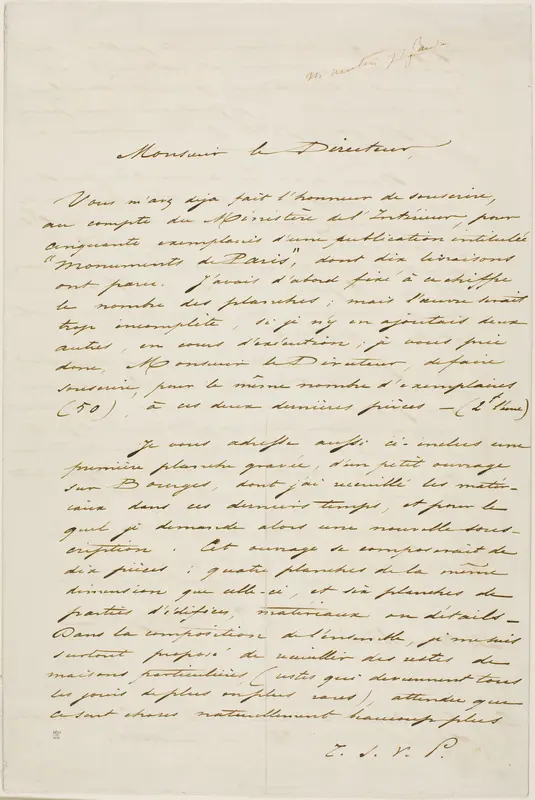 Monsieur le Directeur,
Vous m'avez deja fait l'honneur de souscrire,
au compte du Ministère de l'Intérieur, pour
cinquante exemplaires d'une publication intitulée
"Monuments de Paris", dont dix livraisons
ont paru. J'avais d'abord fixé à ce chiffre
le nombre des planches ; mais l'œuvre serait
trop incomplète, si je n'y en ajoutais deux
autres, en cours d'exécution ; je vous prie
donc, Monsieur le Directeur, de faire
souscrire, pour le même nombre d'exemplaires
(50), à ces deux dernières pièces — (2f l'une)
Je vous adresse aussi ci-inclus une
première planche gravée, d'un petit ouvrage
sur Bourges, dont j'ai recueilli les matér-
iaux dans ces derniers temps, et pour le
quel je demande alors une nouvelle sous-
cription. Cet ouvrage se composerait de
dix pièces : quatre planches de la même
dimension que celle-ci, et six planches de
parties d'édifices, matériaux ou détails —
Dans la composition de l'ensemble, je me suis
surtout proposé de recueillir des restes de
maisons particulières (restes qui deviennent tous
les jours de plus en plus rares), attendu que
ce sont choses naturellement beaucoup plus
T. S. V. P.